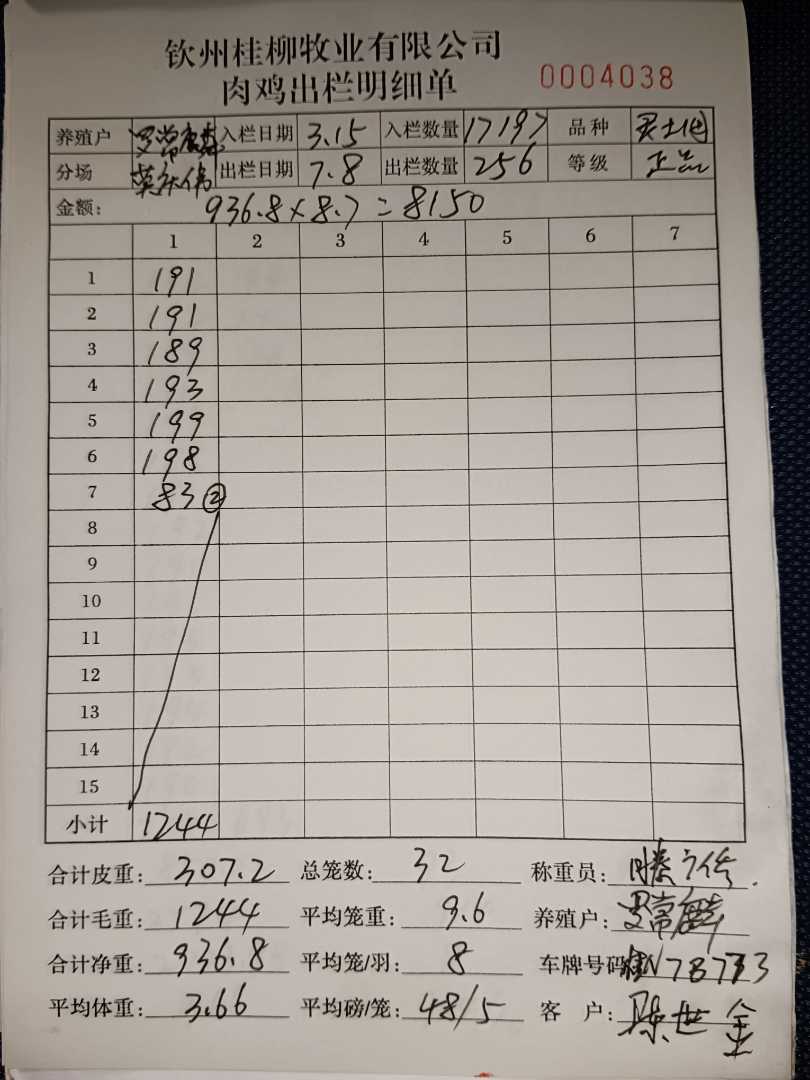 钦州桂柳牧业有限公司
肉鸡出栏明细单 0004038
养殖户 罗常麟 入栏日期 3.15 入栏数量 17197 品种
分场 出栏日期 7.8 出栏数量 256 等级 正品
金额: 936.8×8.7=8150
1 2 3 4 5 6 7
1 191
2 191
3 189
4 193
5 199
6 198
7 83②
8
9
10
11
12
13
14
15
小计 1244
合计皮重: 307.2 总笼数: 32 称重员:
合计毛重: 1244 平均笼重: 9.6 养殖户: 罗常麟
合计净重: 936.8 平均笼/羽: 8 车牌号码
平均体重: 3.66 平均磅/笼: 48/5 客户: 陈世金